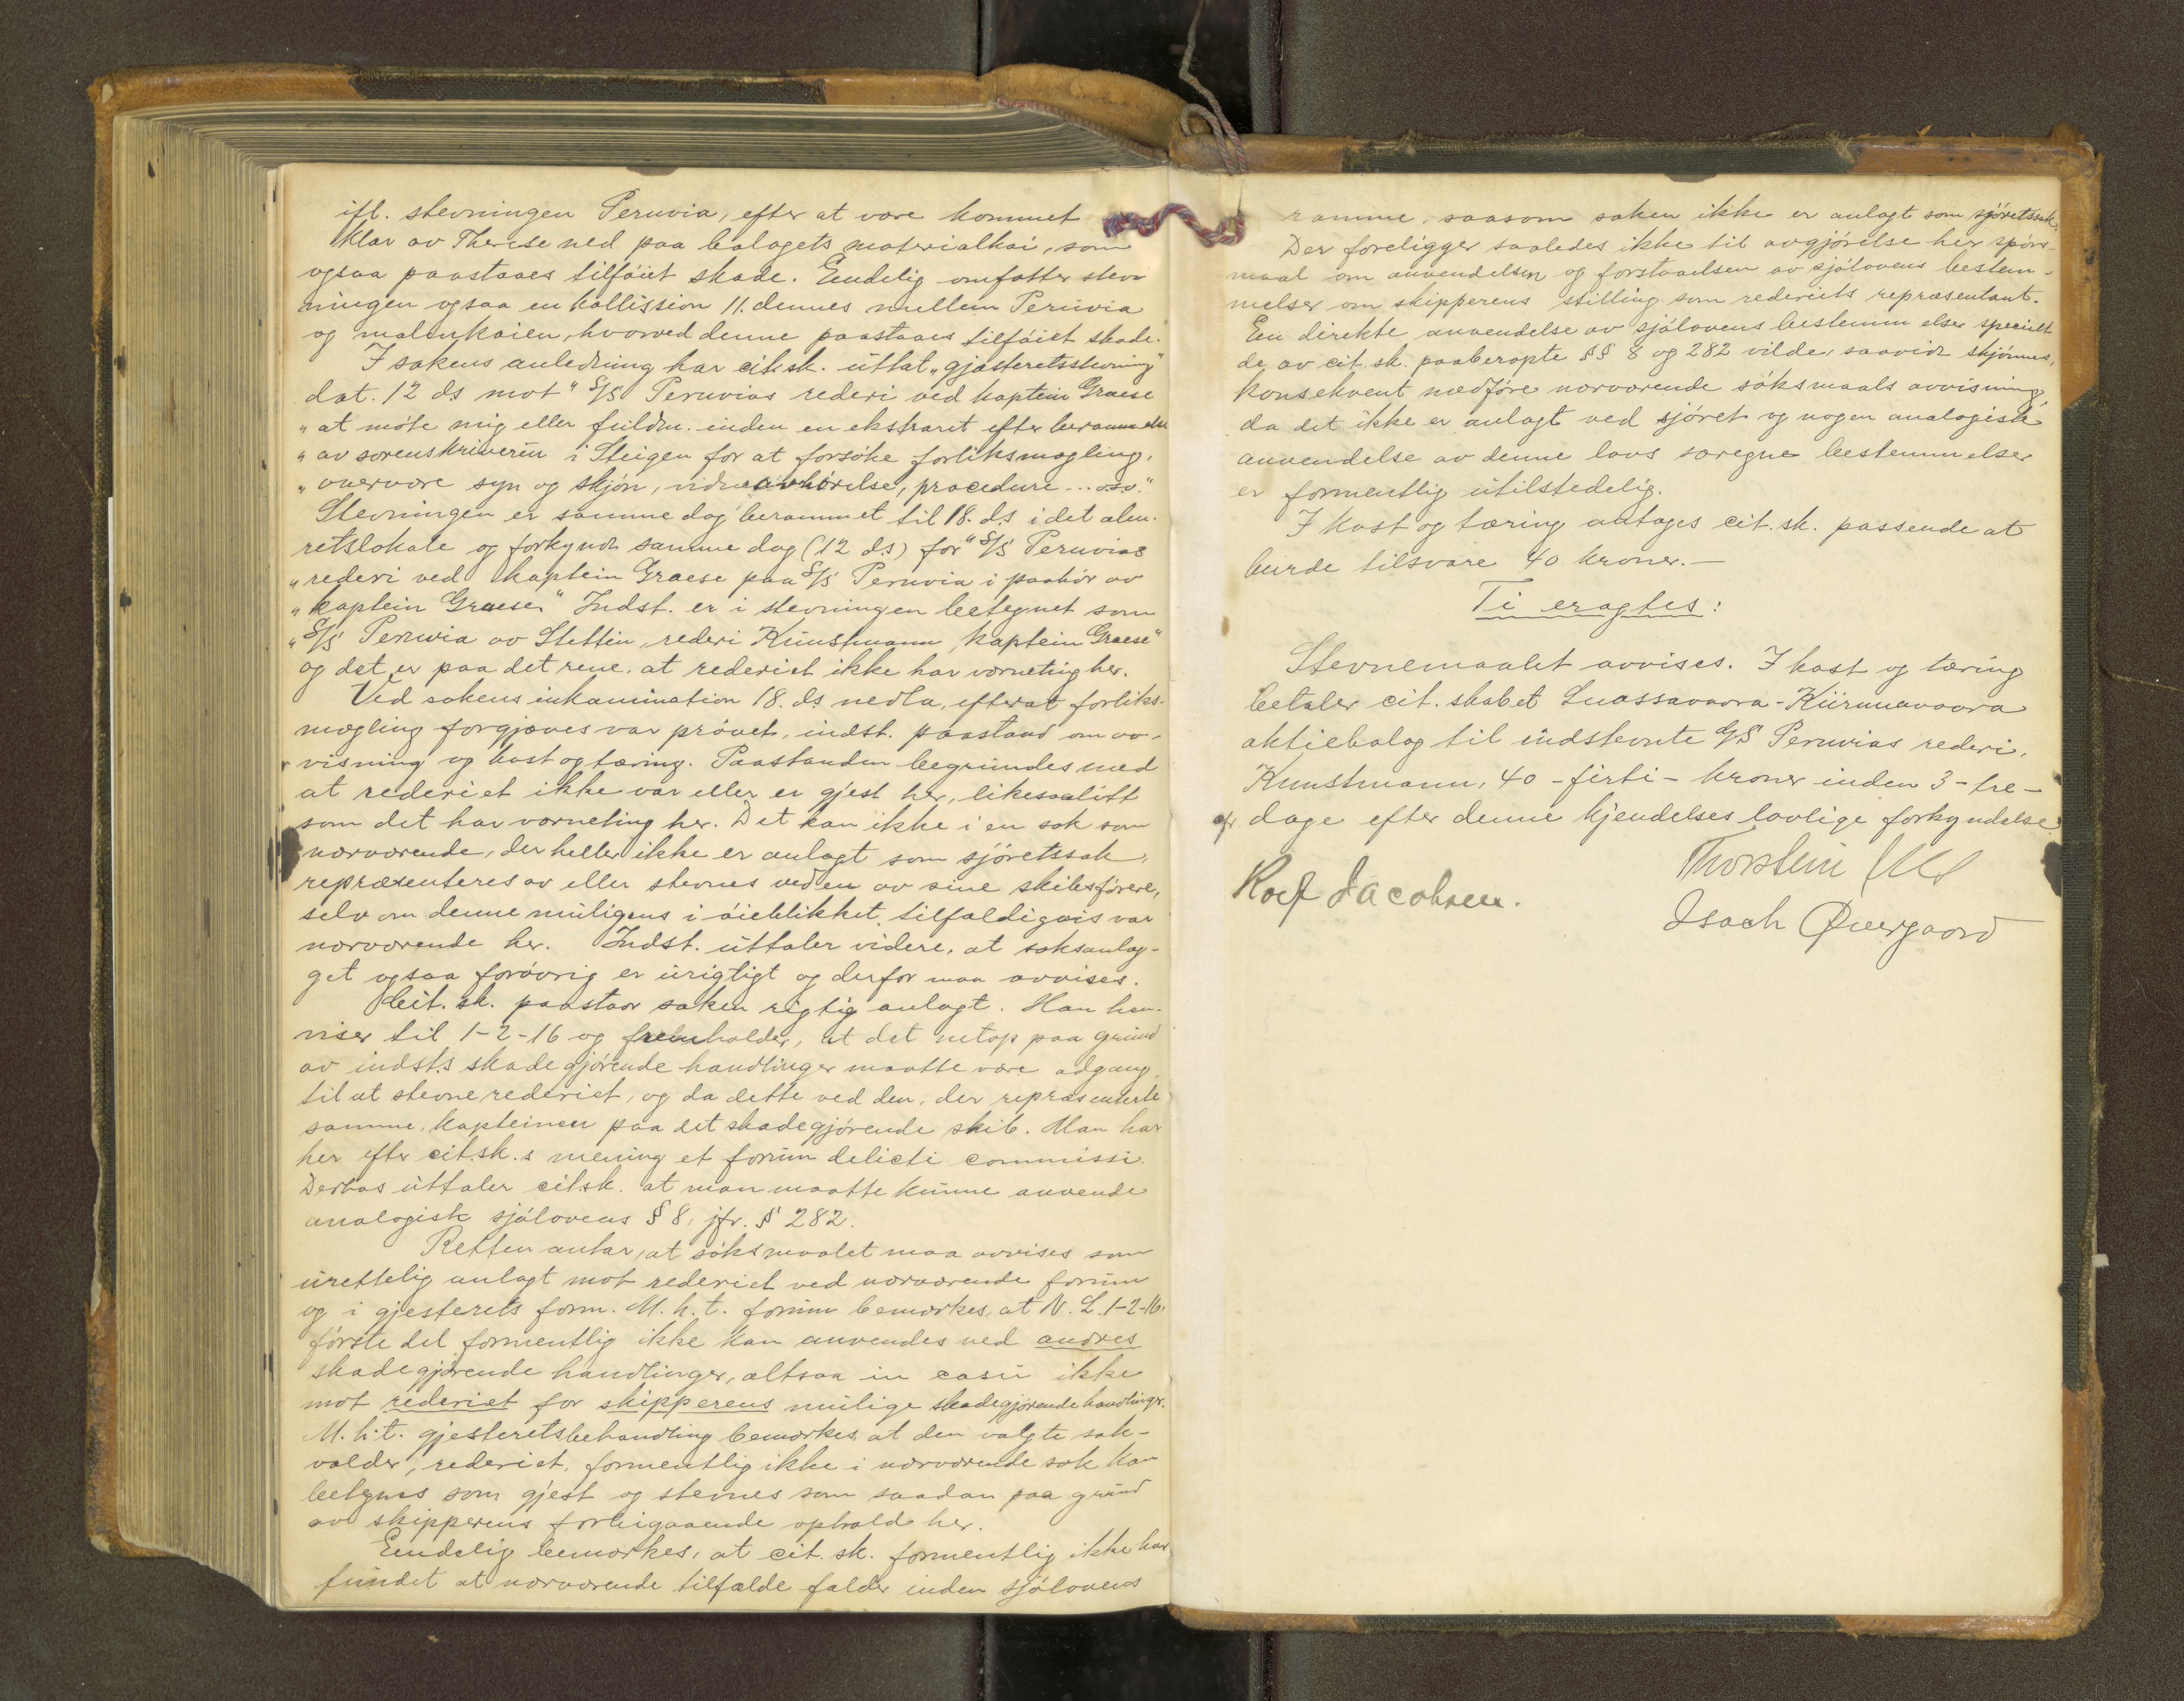 ifl. stevningen Peruvia, efter at være kommet
klar av Therese ned paa bolagets materialkai, som
ogsaa paastaaes tilføiet skade. Endelig omfatter stev
ningen ogsaa en kollission 11. dennes mellem Peruvia
og malmkaien, hvorved denne paastaaes tilføiet skade.
I sakens anledning har cit.sk. uttat „gjæsteretsstevning"
dat. 12 ds mot "S/S Peruvias rederi ved kaptein Graese
„at møte mig eller fuldm. inden en ekstraret efter berammelse
„av sorenskriveren i Steigen for at forsøke forliksmægling,
„overvære syn og skjøn, vidneavhørelse, procedure... o.s.v."
Stevningen er samme dag berammet til 18. ds i det alm.
retslokale og forkyndt samme dag (12 ds) for "S/S Peruvias
„rederi ved kaptein Graese paa S/S Peruvia i paahør av
„kaptein Graese." Indst. er i stevningen betegnet som
„S/S Peruvia av Stettin, rederi Kunstmann, kaptein Graese"
og det er paa det rene, at rederiet ikke har værneting her.
Ved sakens inkamination 18. ds nedla, efterat forliks-
mægling forgjæves var prøvet, indst. paastand om av-
visning og kost og tæring. Paastanden begrundes med
at rederiet ikke var eller er gjest her, likesaalitt
som det har værneting her. Det kan ikke i en sak som
nærværende, der heller ikke er anlagt som sjøretssak,
repræsenteres av eller stevnes ved en av sine skibsførere,
selv om denne muligens i øieblikket tilfældigvis var
nærværende her. Indst. uttaler videre, at saksanlæg-
get ogsaa forøvrig er urigtigt og derfor maa avvises.
Cit. sk. paastaar saken rigtig anlagt. Han hen-
viser til 1-2-16 og fremholder, at det netop paa grund
av indst.s skadegjørende handlinger maatte være adgang
til at stevne rederiet, og da dette ved den, der repræsenterte
samme, kapteinen paa det skadegjørende skib. Man har
her efter cit.sk.s mening et forum delicti commissi.
Derhos uttaler cit.sk. at man maatte kunne anvende
analogisk sjølovens § 8, jfr. § 282.
Retten antar, at søksmaalet maa avvises som
urettelig anlagt mot rederiet ved nærværende forum
og i gjesterets form. M.h.t. forum bemærkes, at N. L. 1-2-16,
første del formentlig ikke kan anvendes ved andres
skadegjørende handlinger, altsaa in casu ikke
mot rederiet for skipperens mulige skadegjørende handlinger.
M.h.t. gjesteretsbehandling bemærkes at den valgte sak-
volder, rederiet, formentlig ikke i nærværende sak kan
betegnes som gjest og stevnes som saadan paa grund
av skipperens forbigaaende ophold her.
Endelig bemærkes, at cit. sk. formentlig ikke har
fundet at nærværende tilfælde falder inden sjølovens
ramme, saasom saken ikke er anlagt som sjøretssak.
Der foreligger saaledes ikke til avgjørelse her spørs-
maal om anvendelsen og forstaaelsen av sjølovens bestem-
melser om skipperens stilling som rederiets repræsentant.
En direkte anvendelse av sjølovens bestemmelser specielt
de av cit.sk. paaberopte §§ 8 og 282 vilde, saavidt skjønnes,
konsekvent medføre nærværende søksmaals avvisning,
da det ikke er anlagt ved sjøret og nogen analogisk
anvendelse av denne lovs særegne bestemmelser
er formentlig utilstedelig.
I kost og tæring antages cit.sk. passende at
burde tilsvare 40 kroner.—
Ti eragtes:
Stevnemaalet avvises. I kost og tæring
betaler cit. skabet Luossavaara-Kiirunavaara
aktiebolag til indstevnte S/S Peruvias rederi,
Kunstmann, 40 - firti - kroner inden 3 - tre -
dage efter denne kjendelses lovlige forkyndelse
Thorstein
Rolf Jacobsen.
Isach Øvergaard